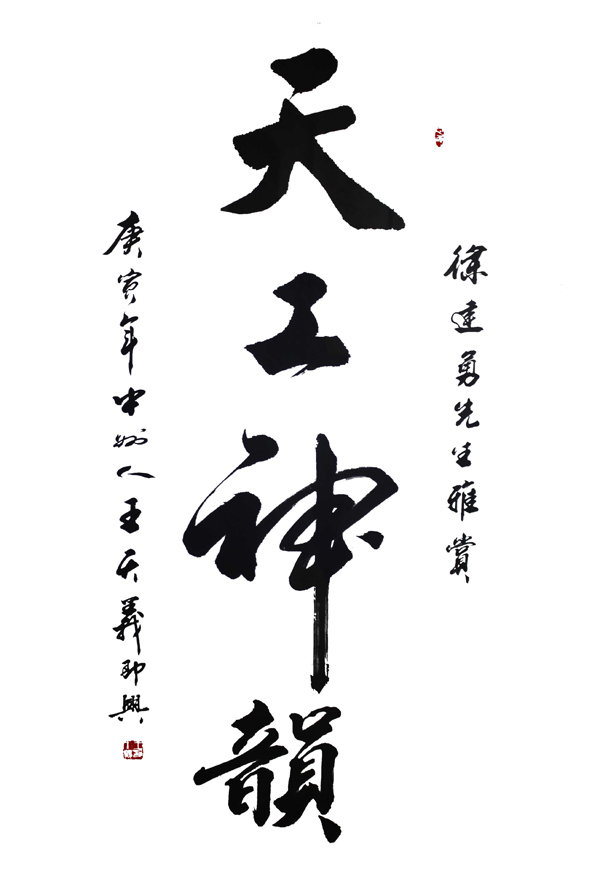 徐達勇先生雅賞
天工神韻
庚寅年中州人王天義即興